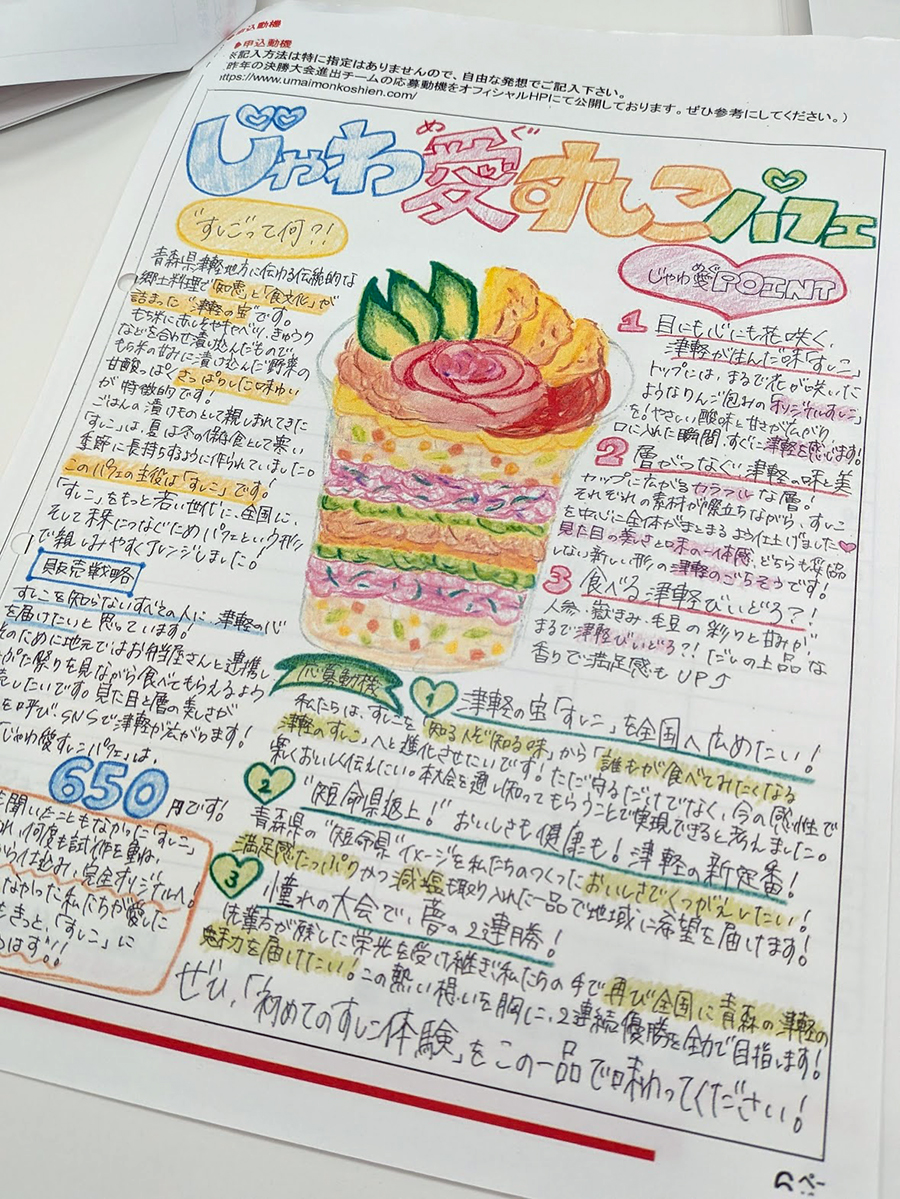 申込動機
◆申込動機
※記入方法は特に指定はありませんので、自由な発想でご記入下さい。
昨年の決勝大会進出チームの応募動機をオフィシャルHPにて公開しております。ぜひ参考にしてください。）
https://www.umaimonkoshien.com/
じゃわ愛すしこパフェ
めぐ
"すしこ"って何?!
青森県津軽地方に伝わる伝統的な
郷土料理で「知恵」と「食文化」が
詰まった"津軽の宝"です。
もち米に赤しそやキャベツ、きゅうり
などを合わせ漬け込んだもので、
もち米の甘みに漬け込んだ野菜の
甘酸っぱくさっぱりした味わい
が特徴的です!
ごはんの漬けものとして親しまれてきた
「すしこ」は、夏は冬の保存食として寒い
季節に長持ちするように作られていました。
このパフェの主役は「すしこ」です!
「すしこ」をもっと若い世代に、全国に、
そして未来につなぐためパフェという
で親しみやすくアレンジしました!
販売戦略
すしこを知らないすべての人に、津軽の心
を届けたいと思っています!
そのために地元ではお弁当屋さんと連携し
ぷた祭りを見ながら食べてもらえるよう
売したいです。見た目と層の美しさが
を呼び、SNSで津軽が広がります!
じゃわ愛すしこパフェ」は、
650円です!
を聞いたこともなかった"すしこ"
れ、何度も試作を重ね、
から仕込み、完全オリジナルへ!
なかった私たちが愛した
もきっと、「すしこ」に
るはず!!
じゃわ愛POINT
めぐ
1 目にも心にも花咲く、
津軽が生んだ味「すしこ」
トップには、まるで花が咲いた
ようなりんご包みの「オリジナルすしこ」
をのせ、やさしい酸味と甘さが広がり、
口に入れた瞬間、すぐに津軽を感じます!
2 層がつなぐ津軽の味と美
カップに広がるカラフルな層!
それぞれの素材が際立ちながら、すしこ
を中心に全体がまとまるよう仕上げました♥
見た目の美しさと味の一体感、どちらも妥協
しない新しい形の津軽のごちそうです!
3 食べる津軽びいどろ?!
人参・嶽きみ・毛豆の彩りと甘みが
まるで津軽びいどろ?! だしの上品な
香りで満足感もUP♪
応募動機
1 津軽の宝「すしこ」を全国へ広めたい!
私たちは、すしこを「知る人ぞ知る味」から「誰もが食べてみたくなる
津軽のすしこ」へと進化させたいです! ただ守るだけでなく、今の感性で
楽しくおいしく伝えたい。本大会を通し知ってもらうことで実現できると考えました。
2 "短命県返上!" おいしさも健康も! 津軽の新定番!
青森県の"短命県"イメージを私たちのつくったおいしさでくつがえしたい!
満足感たっぷりかつ減塩も取り入れた一品で地域に希望を届けます!
3 憧れの大会で、夢の2連勝!
先輩方が残した栄光を受け継ぎ、私たちの手で再び全国に青森の津軽の
魅力を届けたい! この熱い想いを胸に、2連続優勝を全力で目指します!
ぜひ、「初めてのすしこ体験」をこの一品で味わってください!